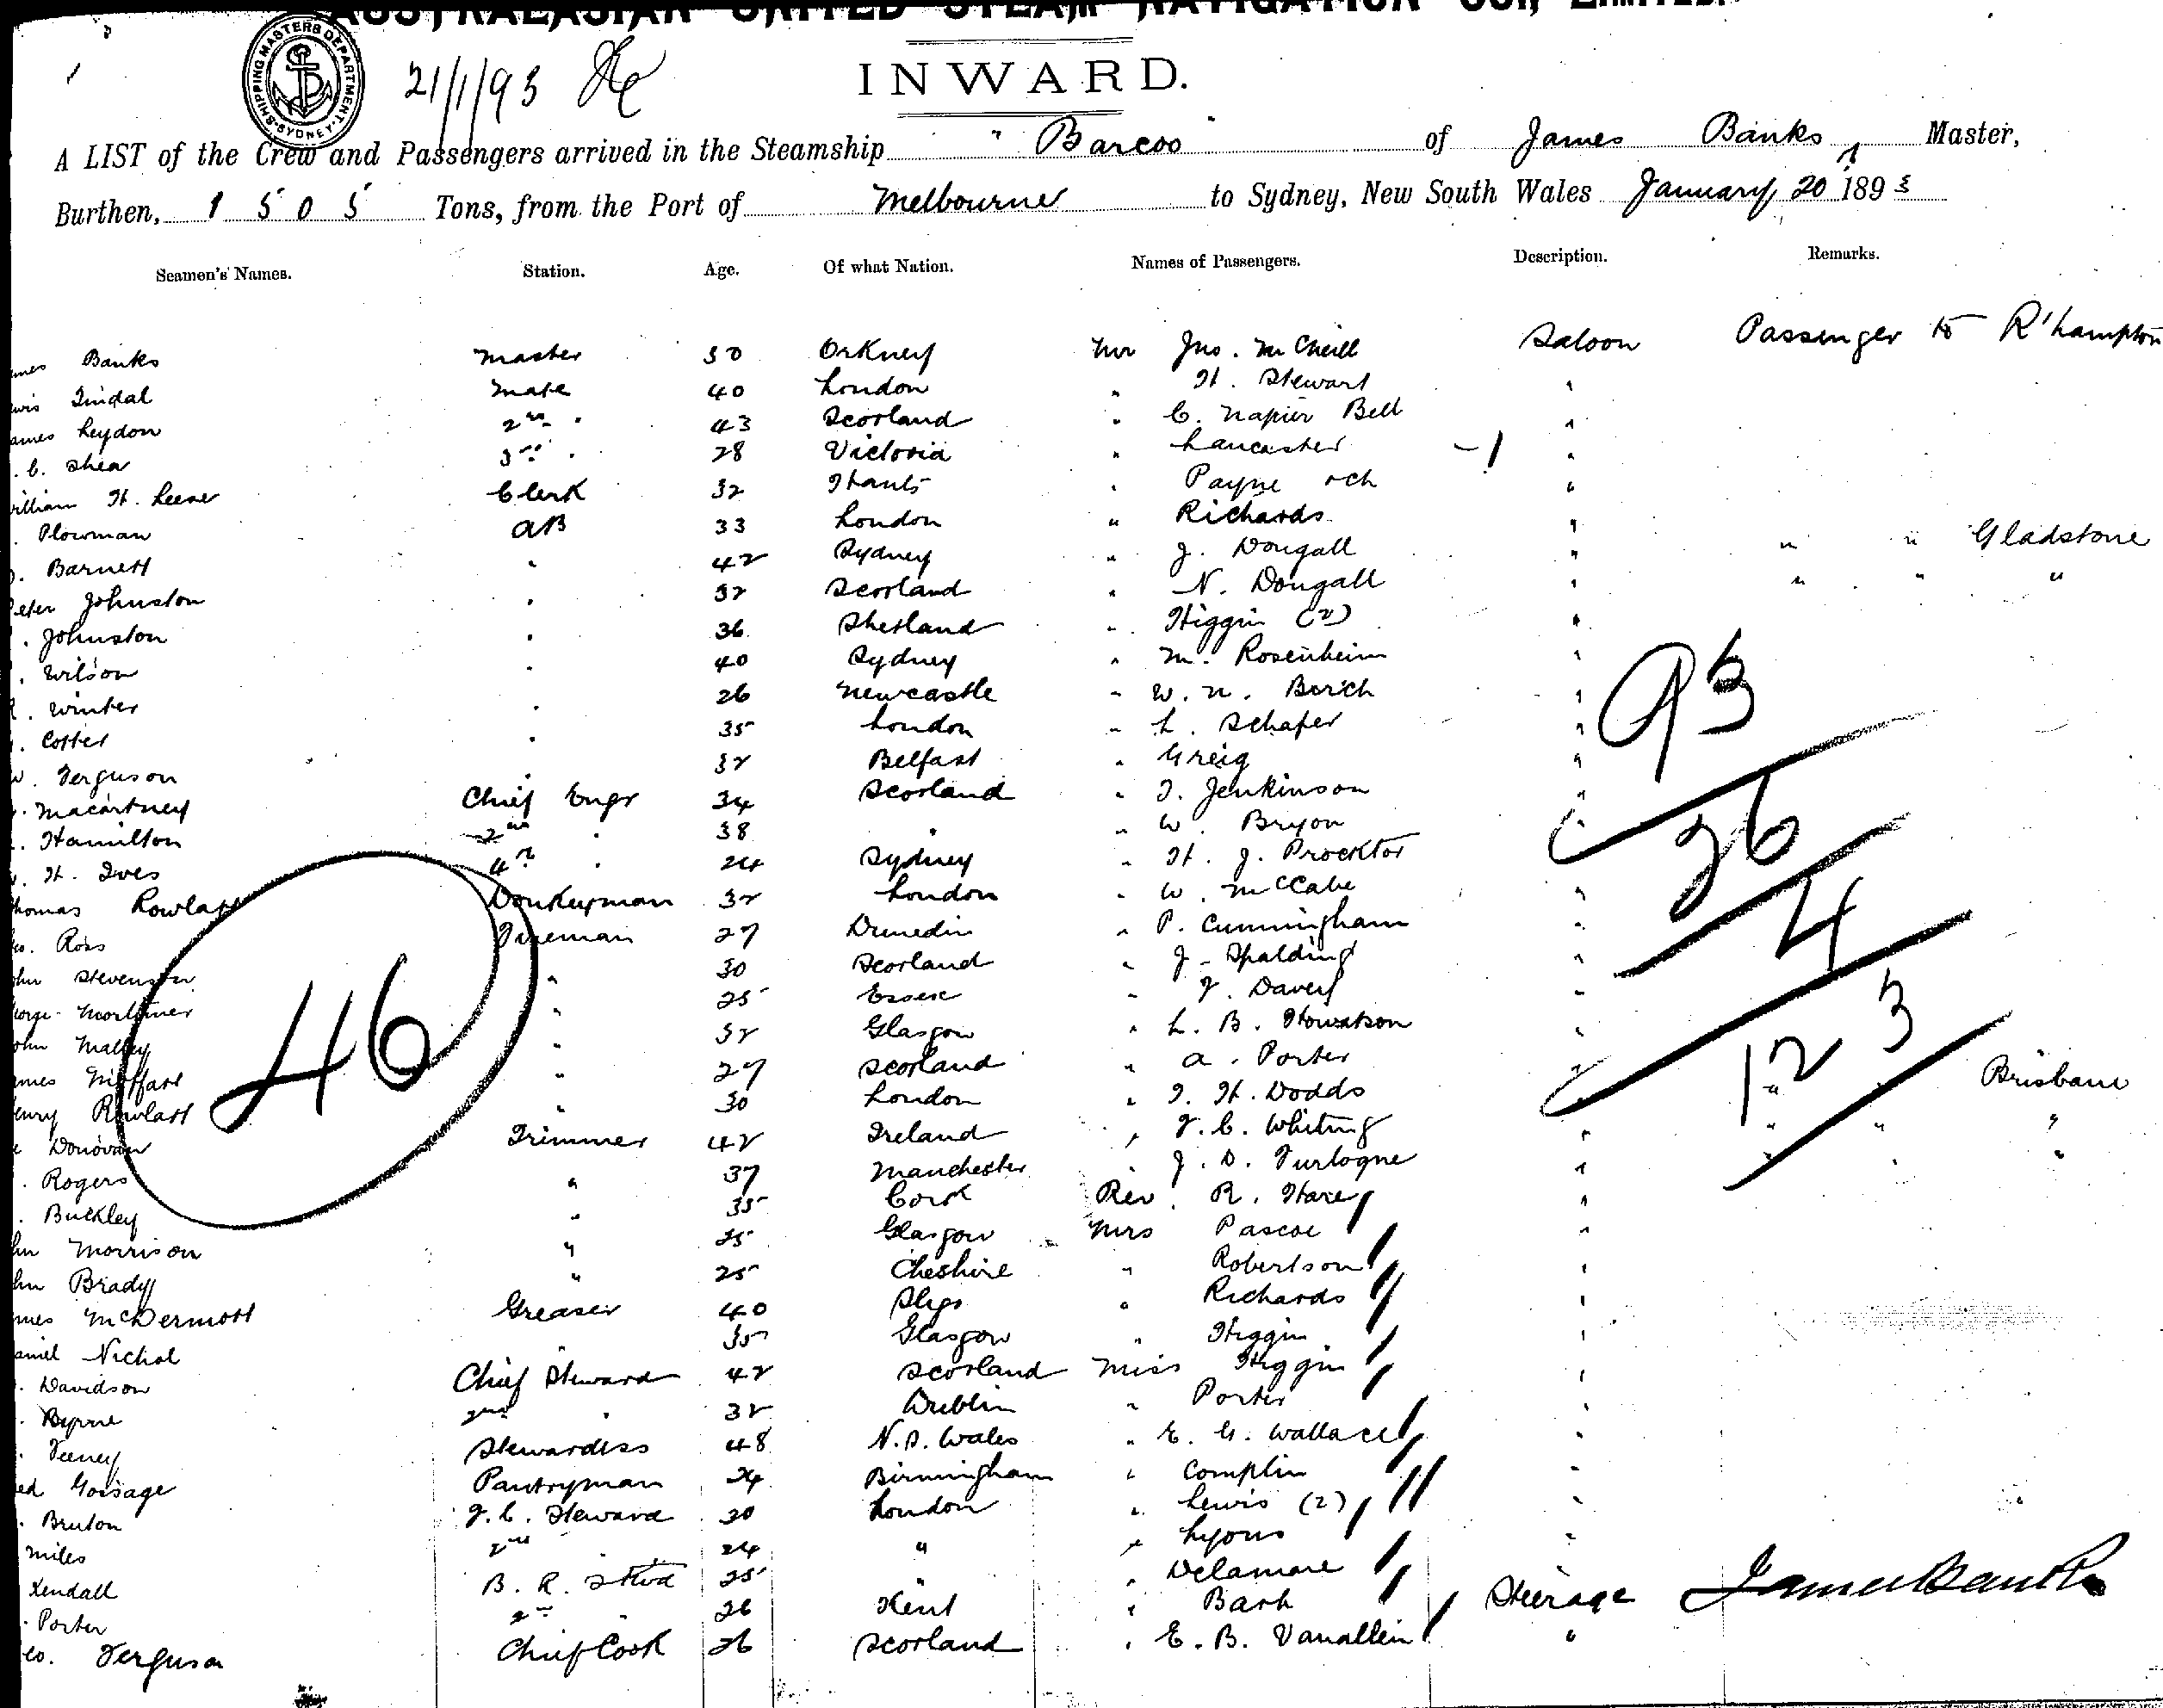 AUSTRALASIAN UNITED STEAM NAVIGATION COY., LIMITED.
SHIPPING MASTERS DEPARTMENT. SYDNEY.
21/1/93
INWARD.
A LIST of the Crew and Passengers arrived in the Steamship "Barcoo" of James Banks, Master,
Burthen, 1505 Tons, from the Port of Melbourne to Sydney, New South Wales January 20 1893
Seamen's Names. Station. Age. Of what Nation. Names of Passengers. Description. Remarks.
mes Banks Master 50 Orkney Mr Jno. McNeill Saloon Passenger to R'hampton
Tindal Mate 40 London " H. Stewart "
ames Leydon 2nd " 43 Scotland " C. Napier Bell "
. C. Shea 3rd " 28 Victoria " Lancaster - 1 "
illiam H. Leene Clerk 32 Hants " Payne "
. Plowman AB 33 London " Richards "
. Barnett " 42 Sydney " J. Dougall " " " Gladstone
eter Johnston " 32 Scotland " N. Dougall " " " "
. Johnston " 36 Shetland " Higgin (2) "
. Wilson " 40 Sydney " M. Rosenheim "
. Winter " 26 Newcastle " W. N. Birch "
. Cotter " 35 London " L. Schafer "
W. Ferguson " 32 Belfast " Greig "
. Macartney Chief Engr 34 Scotland " T. Jenkinson "
. Hamilton 2nd " 38 " " W. Bryon "
. H. Ives 4th " 24 Sydney " H. J. Procktor "
homas Rowlatt Donkeyman 32 London " W. McCabe "
. Ross Fireman 27 Dunedin " P. Cunningham "
ohn Stevenston " 30 Scotland " J. Spalding "
eorge Mortimer " 25 Essex " F. Davey "
ohn Malley " 32 Glasgow " L. B. Howatson "
ames Moffatt " 27 Scotland " A. Porter "
enry Rowlatt " 30 London " T. H. Dodds " " " Brisbane
Donovan Trimmer 42 Ireland " F. C. Whiting " " " "
. Rogers " 37 Manchester " J. D. Turlogne " " " "
. Buckley " 35 Cork Rev. R. Hare "
hn Morrison " 25 Glasgow Mrs Pascoe "
hn Brady " 25 Cheshire " Robertson "
mes McDermott Greaser 40 Sligo " Richards "
aniel Nichol " 35 Glasgow " Higgin "
. Davidson Chief Steward 42 Scotland Miss Higgin "
. Byrne 2nd " 32 Dublin " Porter "
. Feeney Stewardess 48 N.S. Wales " E. G. Wallace "
ed Gossage Pantryman 24 Birmingham " Complin "
. Bruton F.C. Steward 30 London " Lewis (2) "
Miles 2nd 24 " " Lyons "
Kendall B. R. Stwd 25 " " Delamare
. Porter 2nd " 26 Kent " Bark Steerage James Banks
eo. Ferguson Chief Cook 26 Scotland " E. B. Vanallein "
46
93
26
4
123